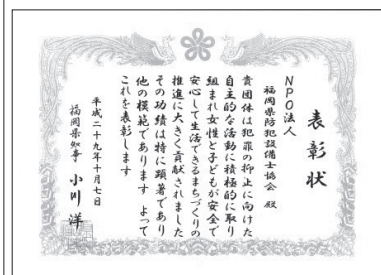 表彰状
NPO法人
福岡県防犯設備士協会 殿
貴団体は犯罪の抑止に向けた
自主的な活動に積極的に取り
組まれ女性と子どもが安全で
安心して生活できるまちづくりの
推進に大きく貢献されました
その功績は特に顕著であり
他の模範であります よって
これを表彰します
平成二十九年十月七日
福岡県知事 小川 洋